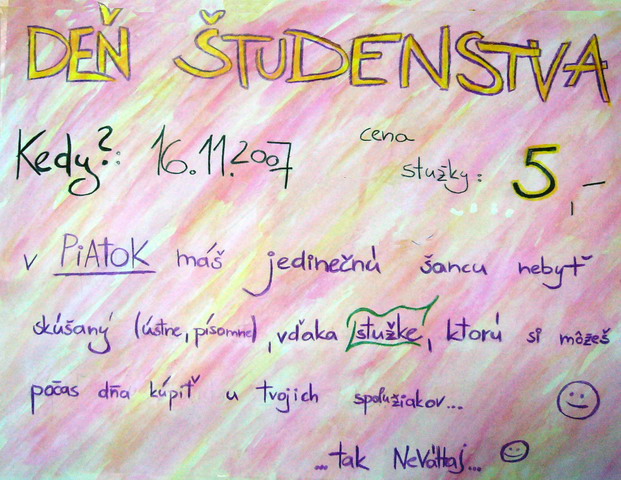 DEŇ ŠTUDENSTVA
Kedy?: 16.11.2007 cena stužky: 5,-
v PiAtOK máš jedinečnú šancu nebyť
skúšaný (ústne, písomne), vďaka stužke, ktorú si môžeš
počas dňa kúpiť u tvojich spolužiakov...
...tak NeVáHaj...